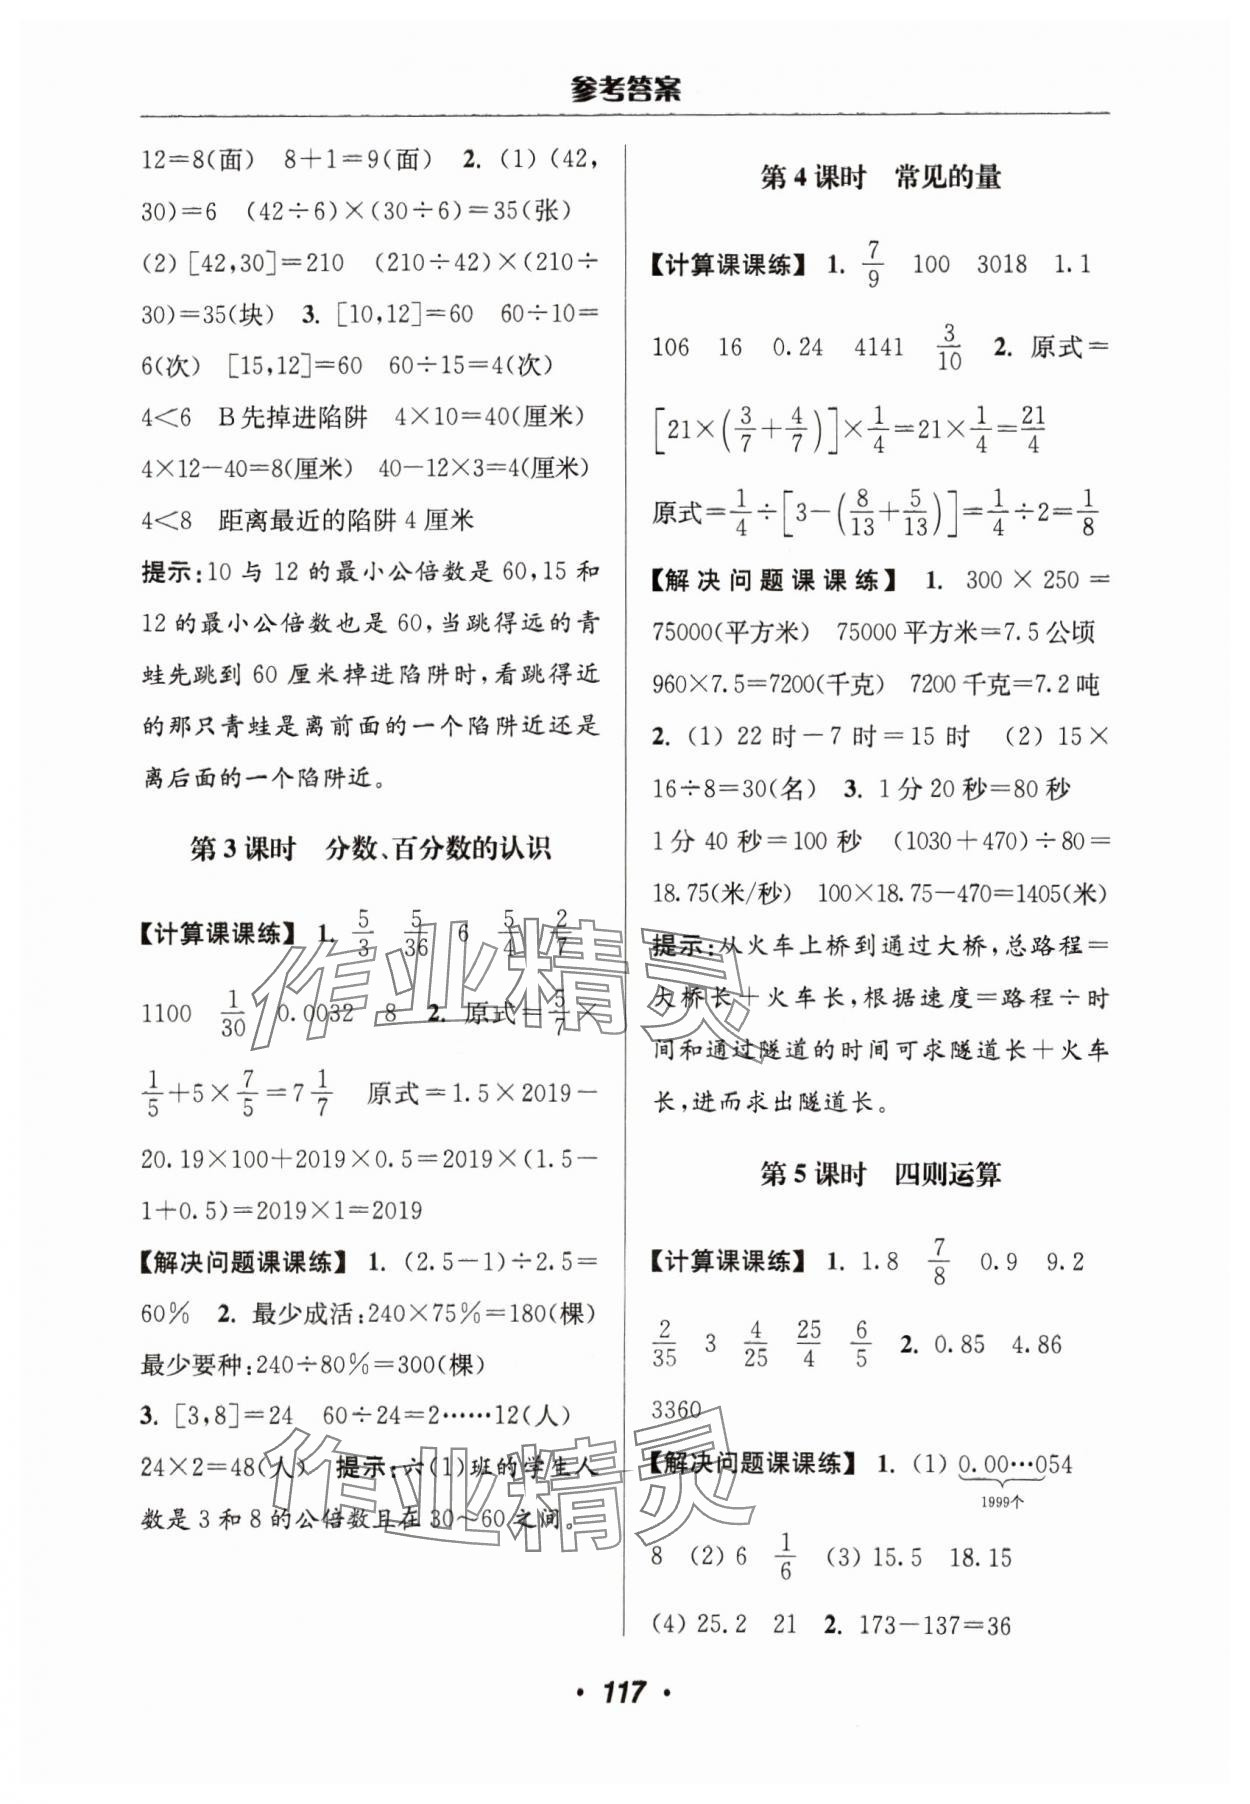 参考答案
12=8(面)　8+1=9(面)　2. (1) (42,
30)=6　(42÷6)×(30÷6)=35(张)
(2) [42,30]=210　(210÷42)×(210÷
30)=35(块)　3. [10,12]=60　60÷10=
6(次)　[15,12]=60　60÷15=4(次)
4<6　B先掉进陷阱　4×10=40(厘米)
4×12-40=8(厘米)　40-12×3=4(厘米)
4<8　距离最近的陷阱4厘米
提示:10与12的最小公倍数是60,15和
12的最小公倍数也是60,当跳得远的青
蛙先跳到60厘米掉进陷阱时,看跳得近
的那只青蛙是离前面的一个陷阱近还是
离后面的一个陷阱近。
第3课时　分数、百分数的认识
【计算课课练】 1. 5/3　5/36　6　5/4　2/7
1100　1/30　0.0032　8　2. 原式=5/7×
1/5+5×7/5=7 1/7　原式=1.5×2019-
20.19×100+2019×0.5=2019×(1.5-
1+0.5)=2019×1=2019
【解决问题课课练】 1. (2.5-1)÷2.5=
60%　2. 最少成活:240×75%=180(棵)
最少要种:240÷80%=300(棵)
3. [3,8]=24　60÷24=2……12(人)
24×2=48(人)　提示:六(1)班的学生人
数是3和8的公倍数且在30~60之间。
第4课时　常见的量
【计算课课练】 1. 7/9　100　3018　1.1
106　16　0.24　4141　3/10　2. 原式=
[21×(3/7+4/7)]×1/4=21×1/4=21/4
原式=1/4÷[3-(8/13+5/13)]=1/4÷2=1/8
【解决问题课课练】 1. 300×250=
75000(平方米)　75000平方米=7.5公顷
960×7.5=7200(千克)　7200千克=7.2吨
2. (1) 22时-7时=15时　(2) 15×
16÷8=30(名)　3. 1分20秒=80秒
1分40秒=100秒　(1030+470)÷80=
18.75(米/秒)　100×18.75-470=1405(米)
提示:从火车上桥到通过大桥,总路程=
大桥长+火车长,根据速度=路程÷时
间和通过隧道的时间可求隧道长+火车
长,进而求出隧道长。
第5课时　四则运算
【计算课课练】 1. 1.8　7/8　0.9　9.2
2/35　3　4/25　25/4　6/5　2. 0.85　4.86
3360
【解决问题课课练】 1. (1) 0.00…054
1999个
8　(2) 6　1/6　(3) 15.5　18.15
(4) 25.2　21　2. 173-137=36
• 117 •
作业精灵
作业精灵